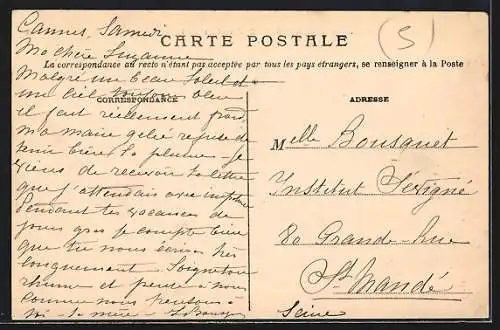 Cannes, Samedi
Ma chère Suzanne
CARTE POSTALE
La correspondance au recto n'étant pas acceptée par tous les pays étrangers, se renseigner à la Poste
Malgré un beau soleil et
un ciel toujours bleu
CORRESPONDANCE
il fait réellement froid,
ma main gelée refuse de
tenir bien la plume. Je
viens de recevoir ta lettre
que j'attendais avec
Pendant tes vacances de
jours gras je compte bien
que tu nous écriras très
longuement. Soigne ton
rhume et pense à nous
comme nous pensons à
toi. ta mère
ADRESSE
Melle Bousquet
Institut Sévigné
80 Grande-Rue
St Mandé
Seine
S